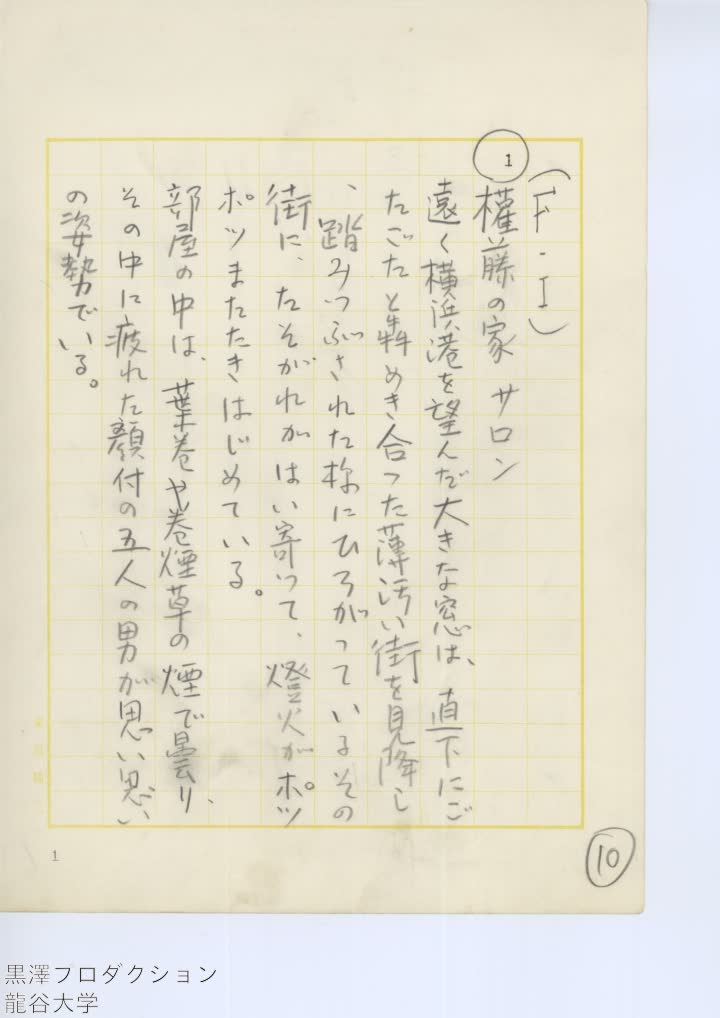 (F・I)
1
権藤の家 サロン
遠く横浜港を望んだ大きな窓は、直下にご
たごたと犇めき合った薄汚い街を見降し
、踏みつぶされた様にひろがっているその
街に、たそがれがはい寄って、燈火がポツ
ポツまたたきはじめている。
部屋の中は、葉巻や巻煙草の煙で曇り、
その中に疲れた顔付の五人の男が思い思い
の姿勢でいる。
1
10
黒澤プロダクション
龍谷大学